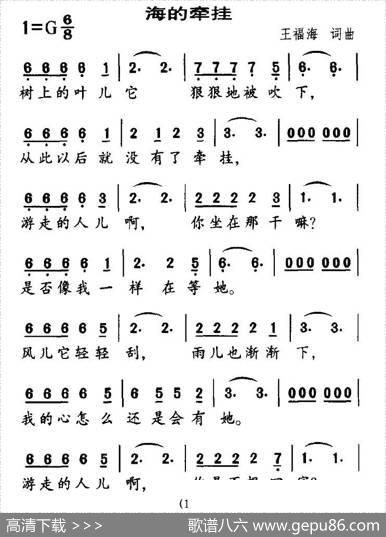 海的牵挂
1=G 6/8
王福海 词曲
6 6 6 6 1 | 2. 2. | 7 7 7 7 5 | 6. 6. |
树上的叶儿它 狠狠地被吹下,
6 6 6 6 1 | 2 1 2 3 | 3. 3. | 000 000 |
从此以后就没有了牵挂,
6 6 6 6 5 | 2. 2. | 2 2 2 2 3 | 1. 1. |
游走的人儿啊, 你坐在那干嘛?
6 6 6 6 1 | 2. 5 | 6. 6. | 000 000 |
是否像我一样在等她。
6 6 6 6 5 | 2. 2. | 2 2 2 2 1 | 3. 3. |
风儿它轻轻刮, 雨儿也渐渐下,
6 6 6 6 5 | 6 5 5 2 | 3. 3. | 000 000 |
我的心怎么还是会有她。
6 6 6 6 5 | 2. 2. | 2 2 2 2 7 | 6. 6. |
游走的人儿啊,
(1
高清下载 >>>
歌谱八六 www.gepu86.com